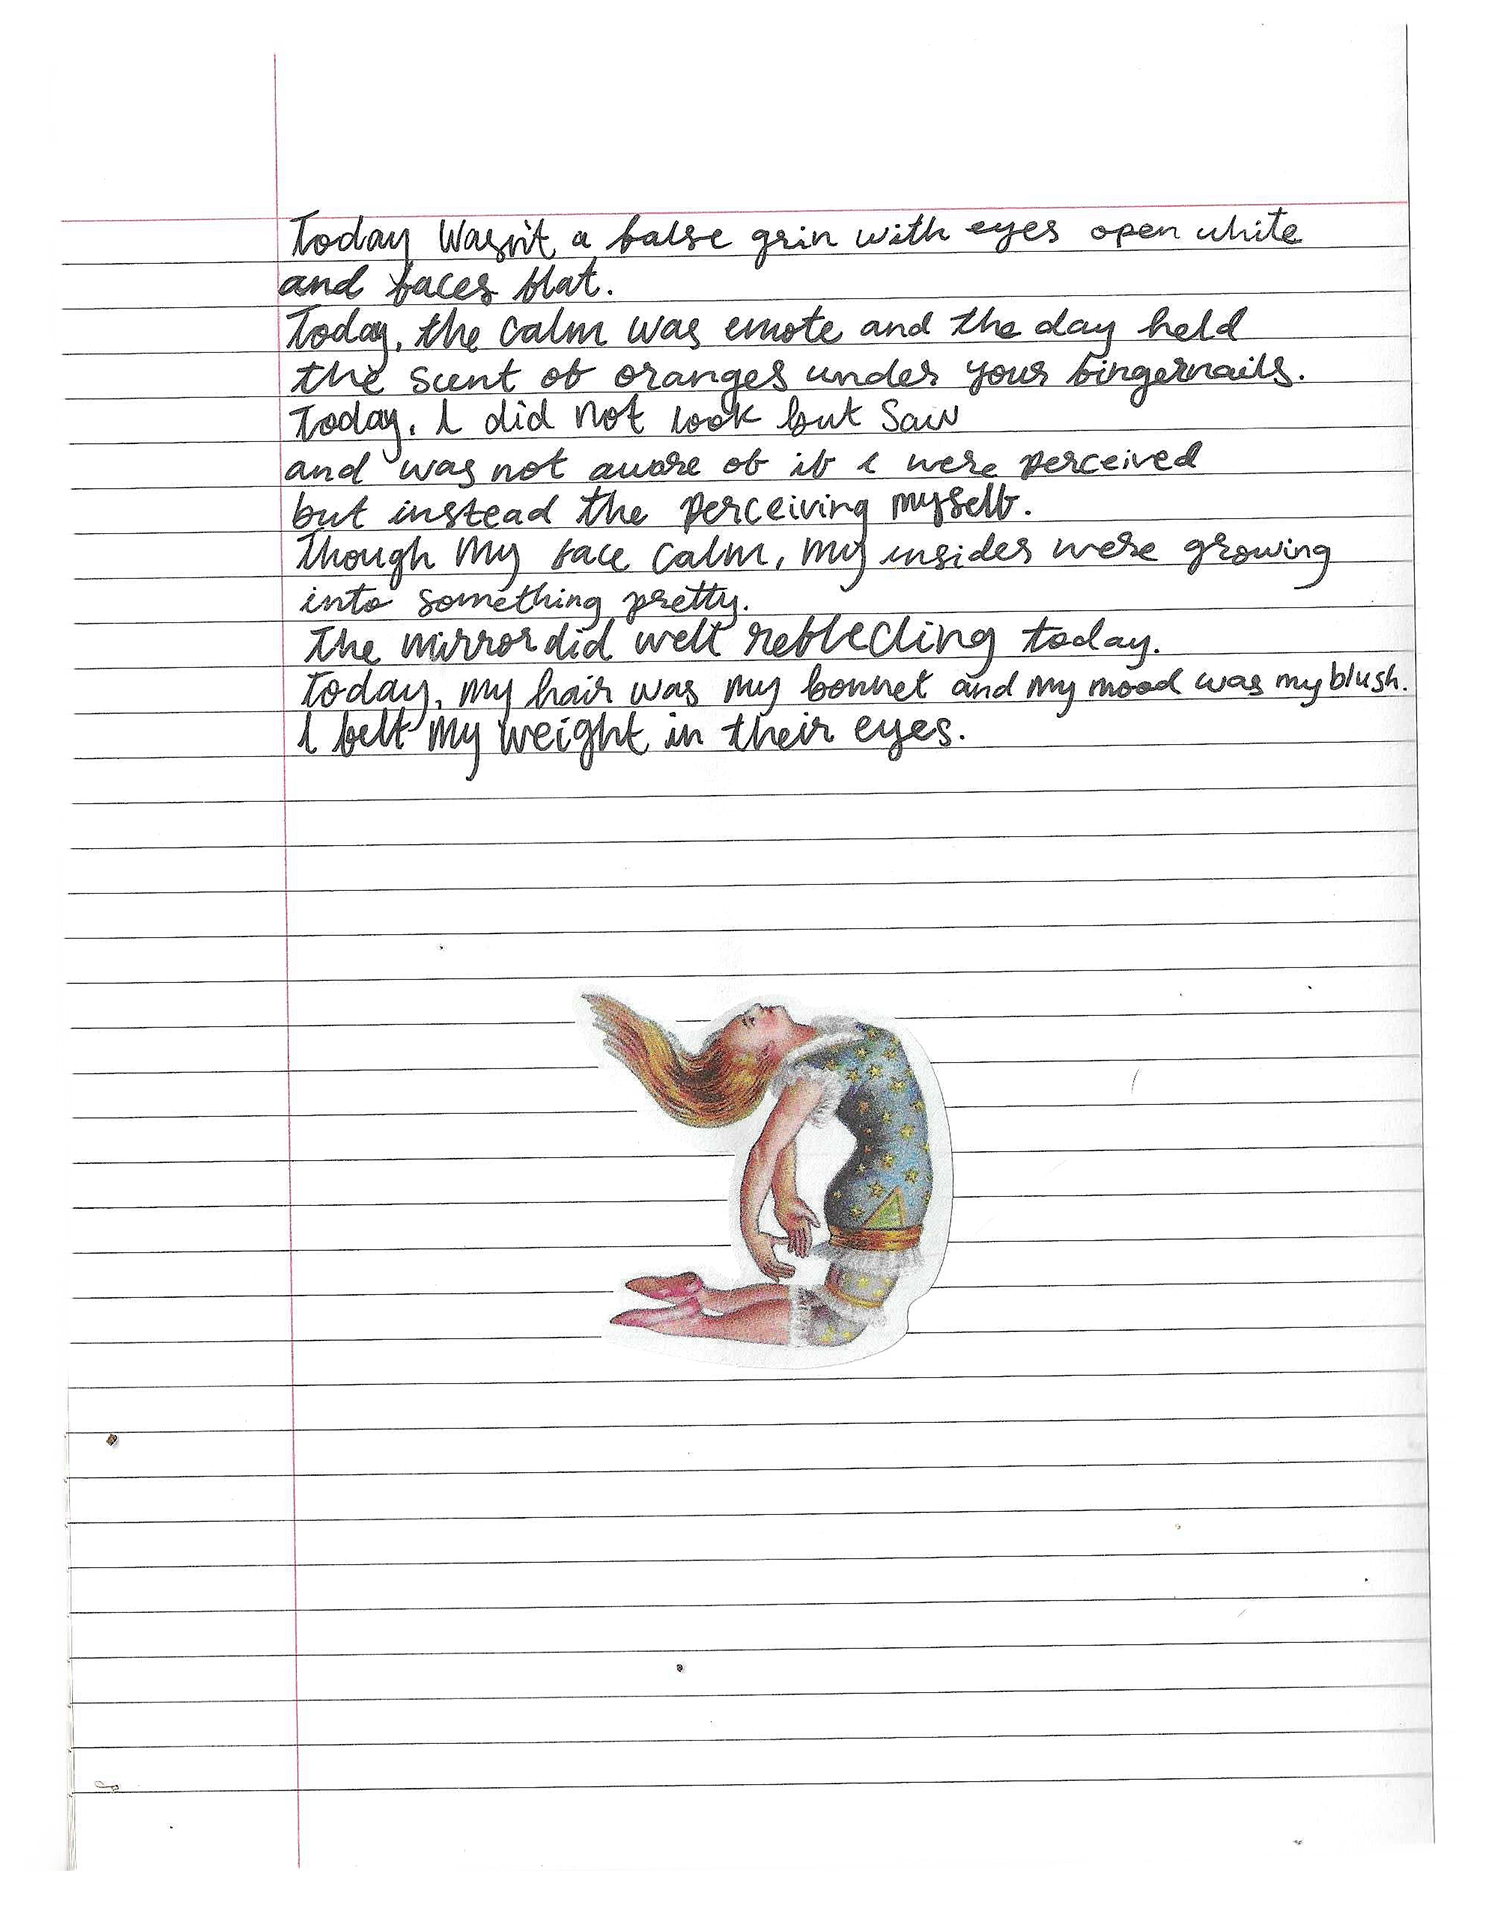 Today Wasn't a false grin with eyes open white
and faces flat.
Today, the calm was emote and the day held
the scent of oranges under your fingernails.
Today, I did not look but saw
and was not aware of if i were perceived
but instead the perceiving myself.
Though my face calm, my insides were growing
into something pretty.
The mirror did well reflecting today.
Today, my hair was my bonnet and my mood was my blush.
I felt my weight in their eyes.